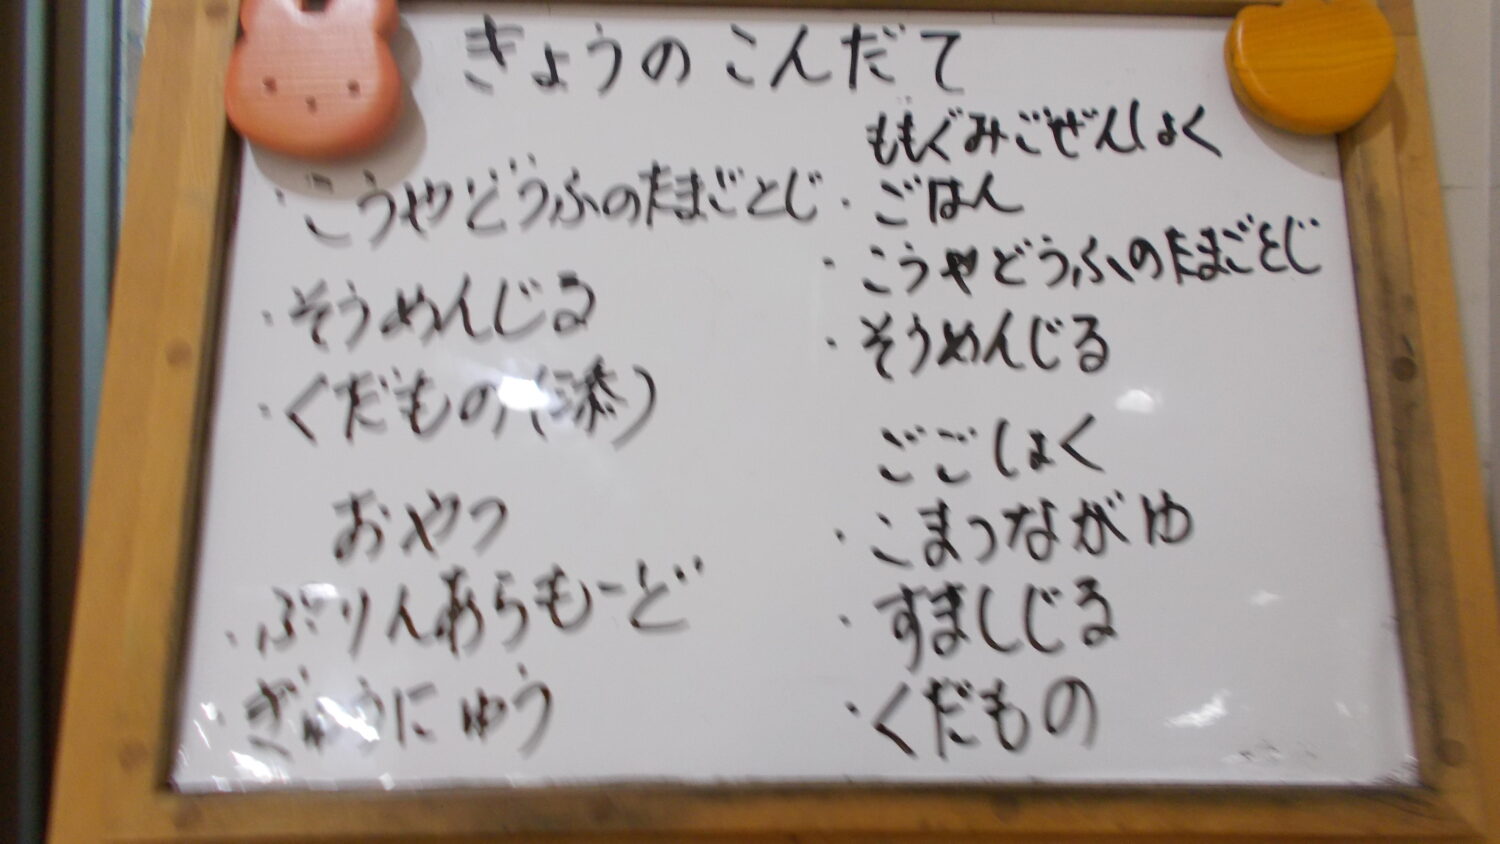 きょうの こんだて
・こうやどうふのたまごとじ
・そうめんじる
・くだもの
おやつ
・ぷりんあらもーど
・ぎゅうにゅう
ももぐみごぜんしょく
・ごはん
・こうやどうふのたまごとじ
・そうめんじる
ごごしょく
・こまつながゆ
・すましじる
・くだもの